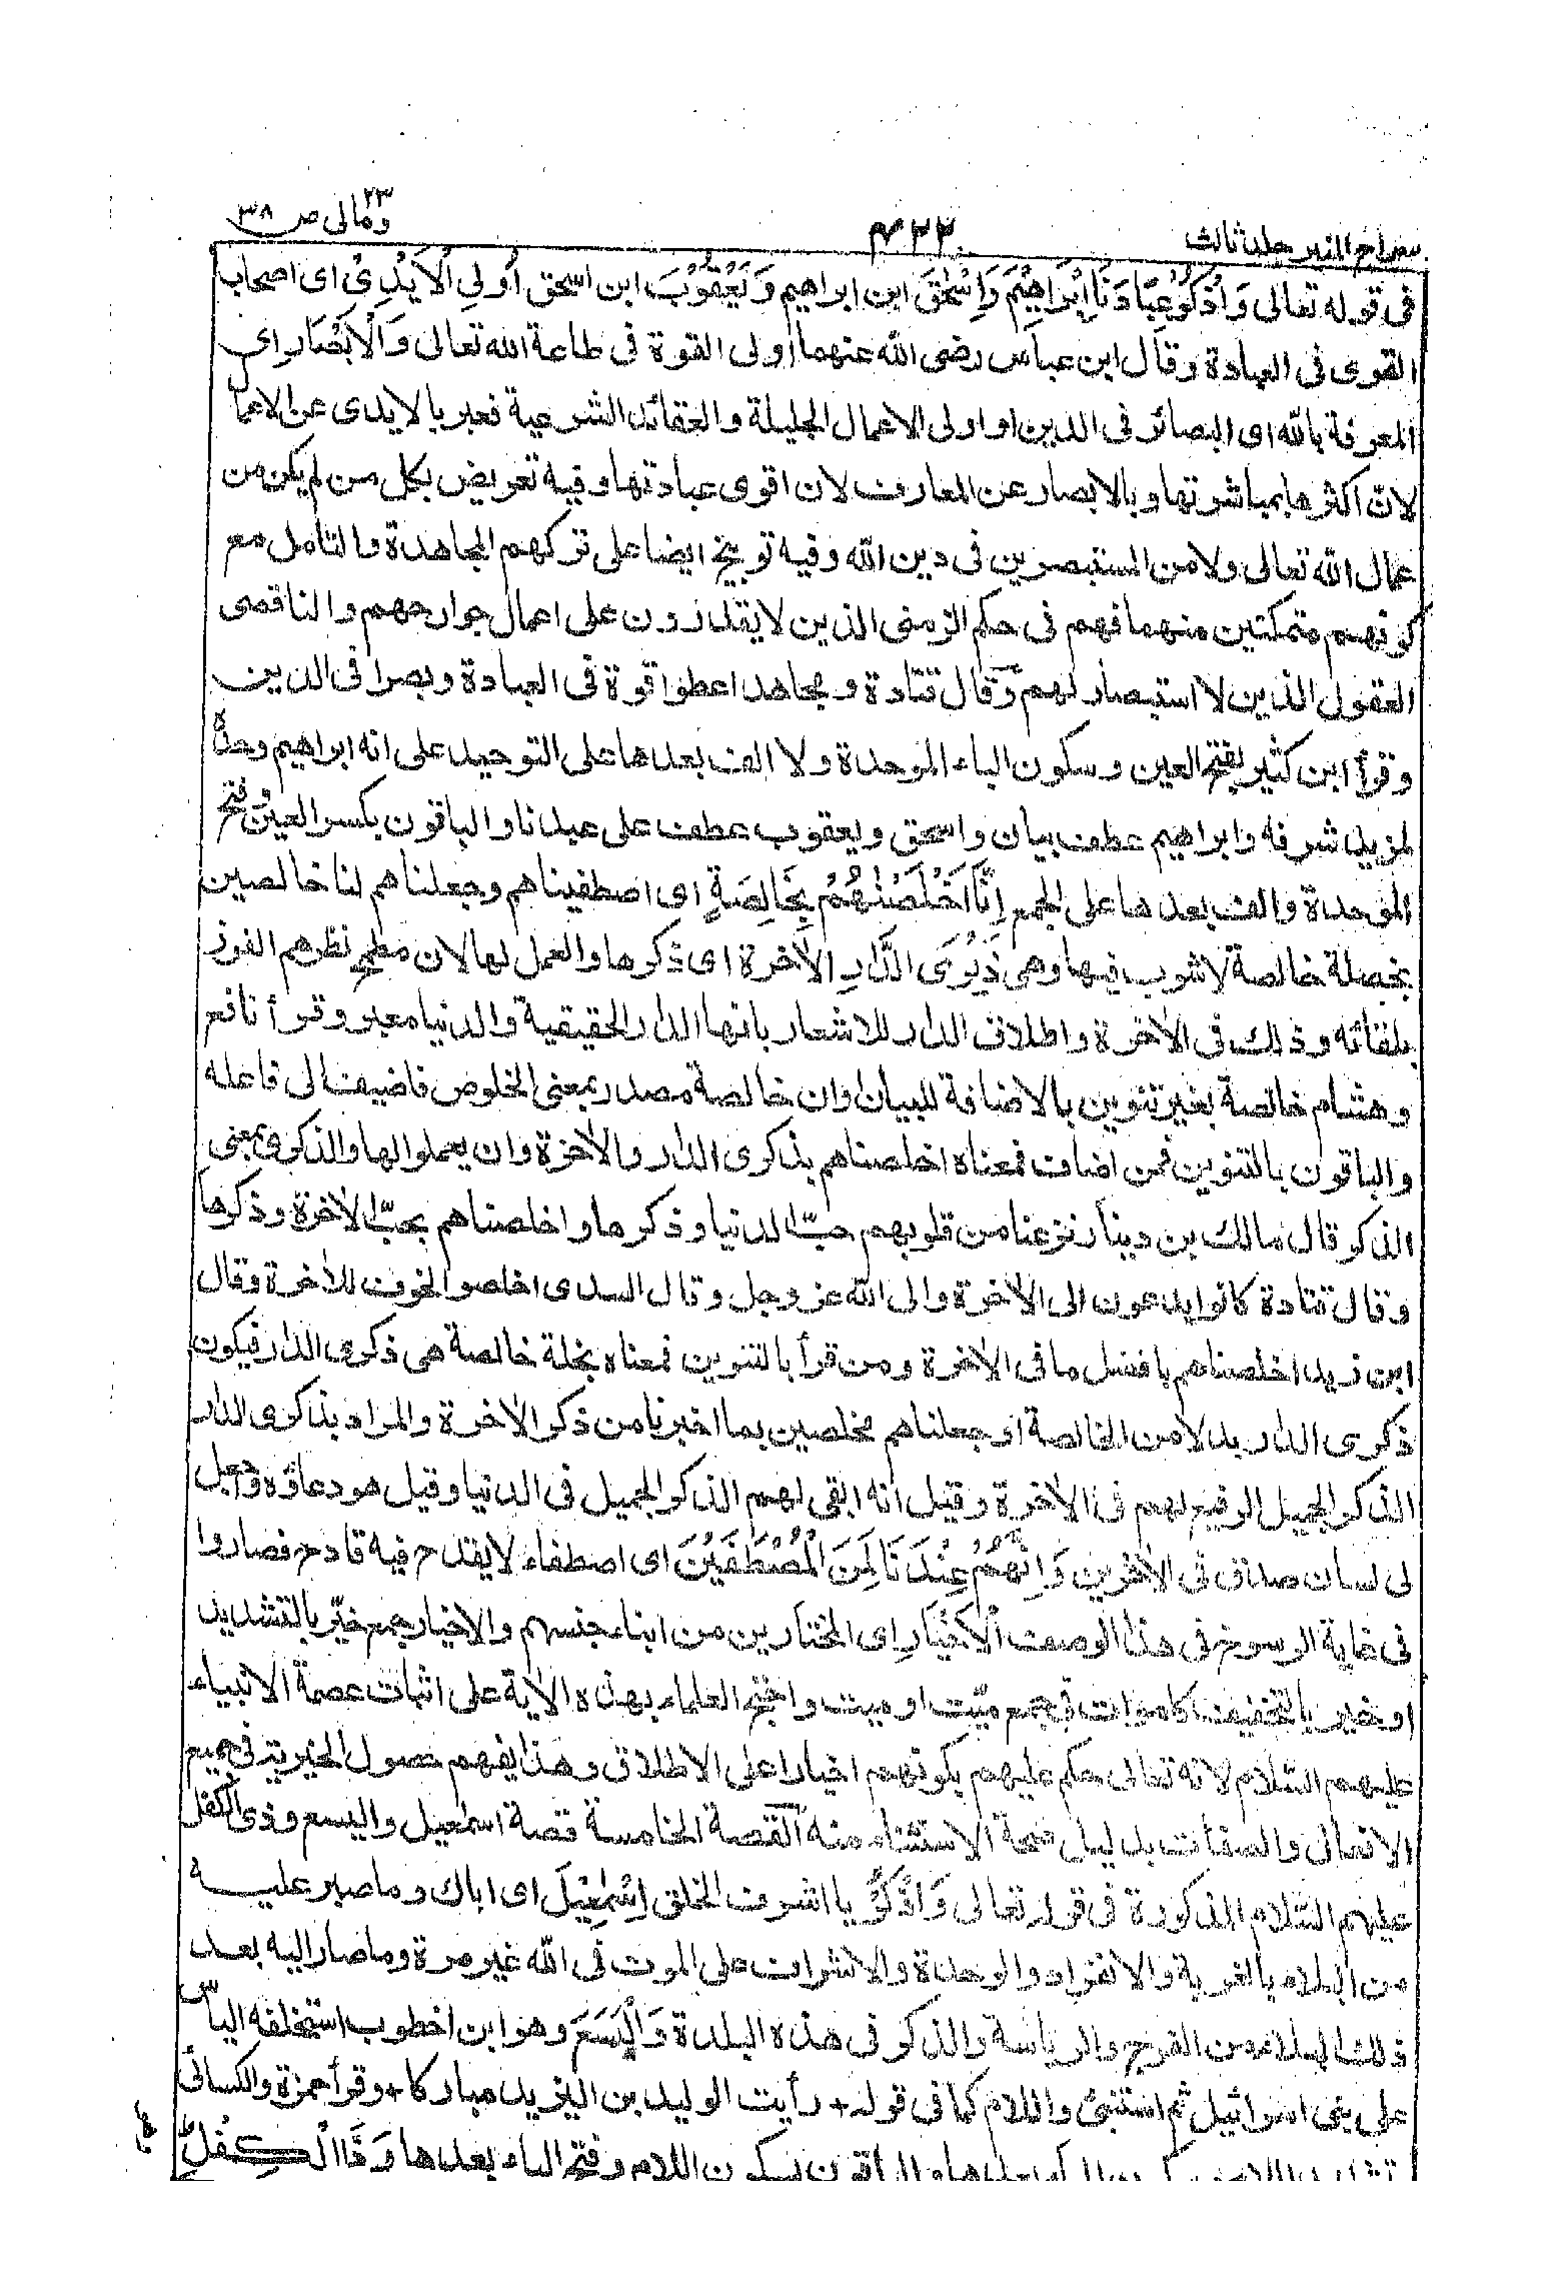 سراج المنير جلد ثالث
٤٢٢
ومالى ٢٣ ص ٣٨
فى قوله تعالى وَاذْكُرْ عِبَادَنَا إِبْرَاهِيْمَ وَإِسْحٰقَ ابن ابراهيم وَيَعْقُوْبَ ابن اسحق أُولِي الْاَيْدِيْ اى اصحاب
القوى فى العبادة وقال ابن عباس رضى الله عنهما أولى القوة فى طاعة الله تعالى وَالْاَبْصَارِ اى
المعرفة بالله اى البصائر فى الدين او اولى الاعمال الجليلة والعقائد الشرعية فعبر بالايدى عن الاعمال
لانّ اكثرها بمباشرتها وبالابصار عن المعارف لان اقوى عبادتها وفيه تعريض بكل من لم يكن من
عمال الله تعالى ولا من المستبصرين فى دين الله وفيه توبيخ ايضا على تركهم المجاهدة والتامل مع
كونهم متمكنين منهما فهم فى حكم الزمنى الذين لا يقدرون على اعمال جوارحهم والناقصى
العقول الذين لا استبصار لهم وقال قتادة ومجاهد اعطوا قوة فى العبادة وبصرا فى الدين
وقرأ ابن كثير بفتح العين وسكون الباء الموحدة ولا الف بعدها على التوحيد على انه ابراهيم وحده
لمزيد شرفه وابراهيم عطف بيان واسحق ويعقوب عطف على عبدنا والباقون بكسر العين وفتح
الموحدة والف بعدها على الجمع إِنَّا اَخْلَصْنٰهُمْ بِخَالِصَةٍ اى اصطفيناهم وجعلناهم لنا خالصين
بخصلة خالصة لا شوب فيها وهى ذِكْرَى الدَّارِ الاٰخرة اى ذكرها والعمل لها لان مطمح نظرهم الفوز
بلقائه وذلك فى الاٰخرة واطلاق الدار للاشعار بانها الدار الحقيقية والدنيا معبر وقرأ نافع
وهشام خالصة بغير تنوين بالاضافة للبيان او ان خالصة مصدر بمعنى الخلوص فاضيف الى فاعله
والباقون بالتنوين فمن اضاف فمعناه اخلصناهم بذكرى الدار والاٰخرة وان يعملوا لها والذكرى بمعنى
الذكر قال مالك بن دينار نزعنا من قلوبهم حبّ الدنيا وذكرها واخلصناهم بحبّ الاٰخرة وذكرها
وقال قتادة كانوا يدعون الى الاٰخرة والى الله عز وجل وقال السدى اخلصوا الخوف للاٰخرة وقال
ابن زيد اخلصناهم بافضل ما فى الاٰخرة ومن قرأ بالتنوين فمعناه بخلة خالصة هى ذكرى الدار فيكون
ذكرى الدار بدلا من الخالصة او جعلناهم مخلصين بما اخبرنا من ذكر الاٰخرة والمراد بذكرى الدار
الذكر الجميل الرفيع لهم فى الاٰخرة وقيل انه ابقى لهم الذكر الجميل فى الدنيا وقيل هو دعاؤه واجعل
لى لسان صدق فى الاٰخرين وَإِنَّهُمْ عِنْدَنَا لَمِنَ الْمُصْطَفَيْنَ اى اصطفاء لا يقدح فيه قادح فصاروا
فى غاية الرسوخ فى هذا الوصف الْاَخْيَارِ اى المختارين من ابناء جنسهم والاخيار جمع خيّر بالتشديد
او خير بالتخفيف كاموات فى جمع ميّت او ميت واحتج العلماء بهذه الاٰية على اثبات عصمة الانبياء
عليهم السّلام لانه تعالى حكم عليهم بكونهم اخيارا على الاطلاق وهذا يفهم حصول الخيرية فى جميع
الافعال والصفات بدليل صحة الاستثناء منه القصة الخامسة قصة اسمٰعيل واليسع وذى الكفل
عليهم السّلام المذكورة فى قوله تعالى وَاذْكُرْ يا اشرف الخلق إِسْمٰعِيْلَ اى اباك وما صبر عليه
من البلاء بالغربة والانفراد والوحدة والاشراف على الموت فى الله غير مرة وما صار اليه بعد
ذلك البلاء من الفرج والرياسة والذكر فى هذه البلدة وَالْيَسَعَ وهو ابن اخطوب استخلفه الياس
على بنى اسرائيل ثم استنبئ واللام كما فى قوله + رأيت الوليد بن اليزيد مباركا + وقرأ حمزة والكسائى
بعدها والباقون بسكون اللام وفتح الياء بعدها وَذَا الْكِفْلِ